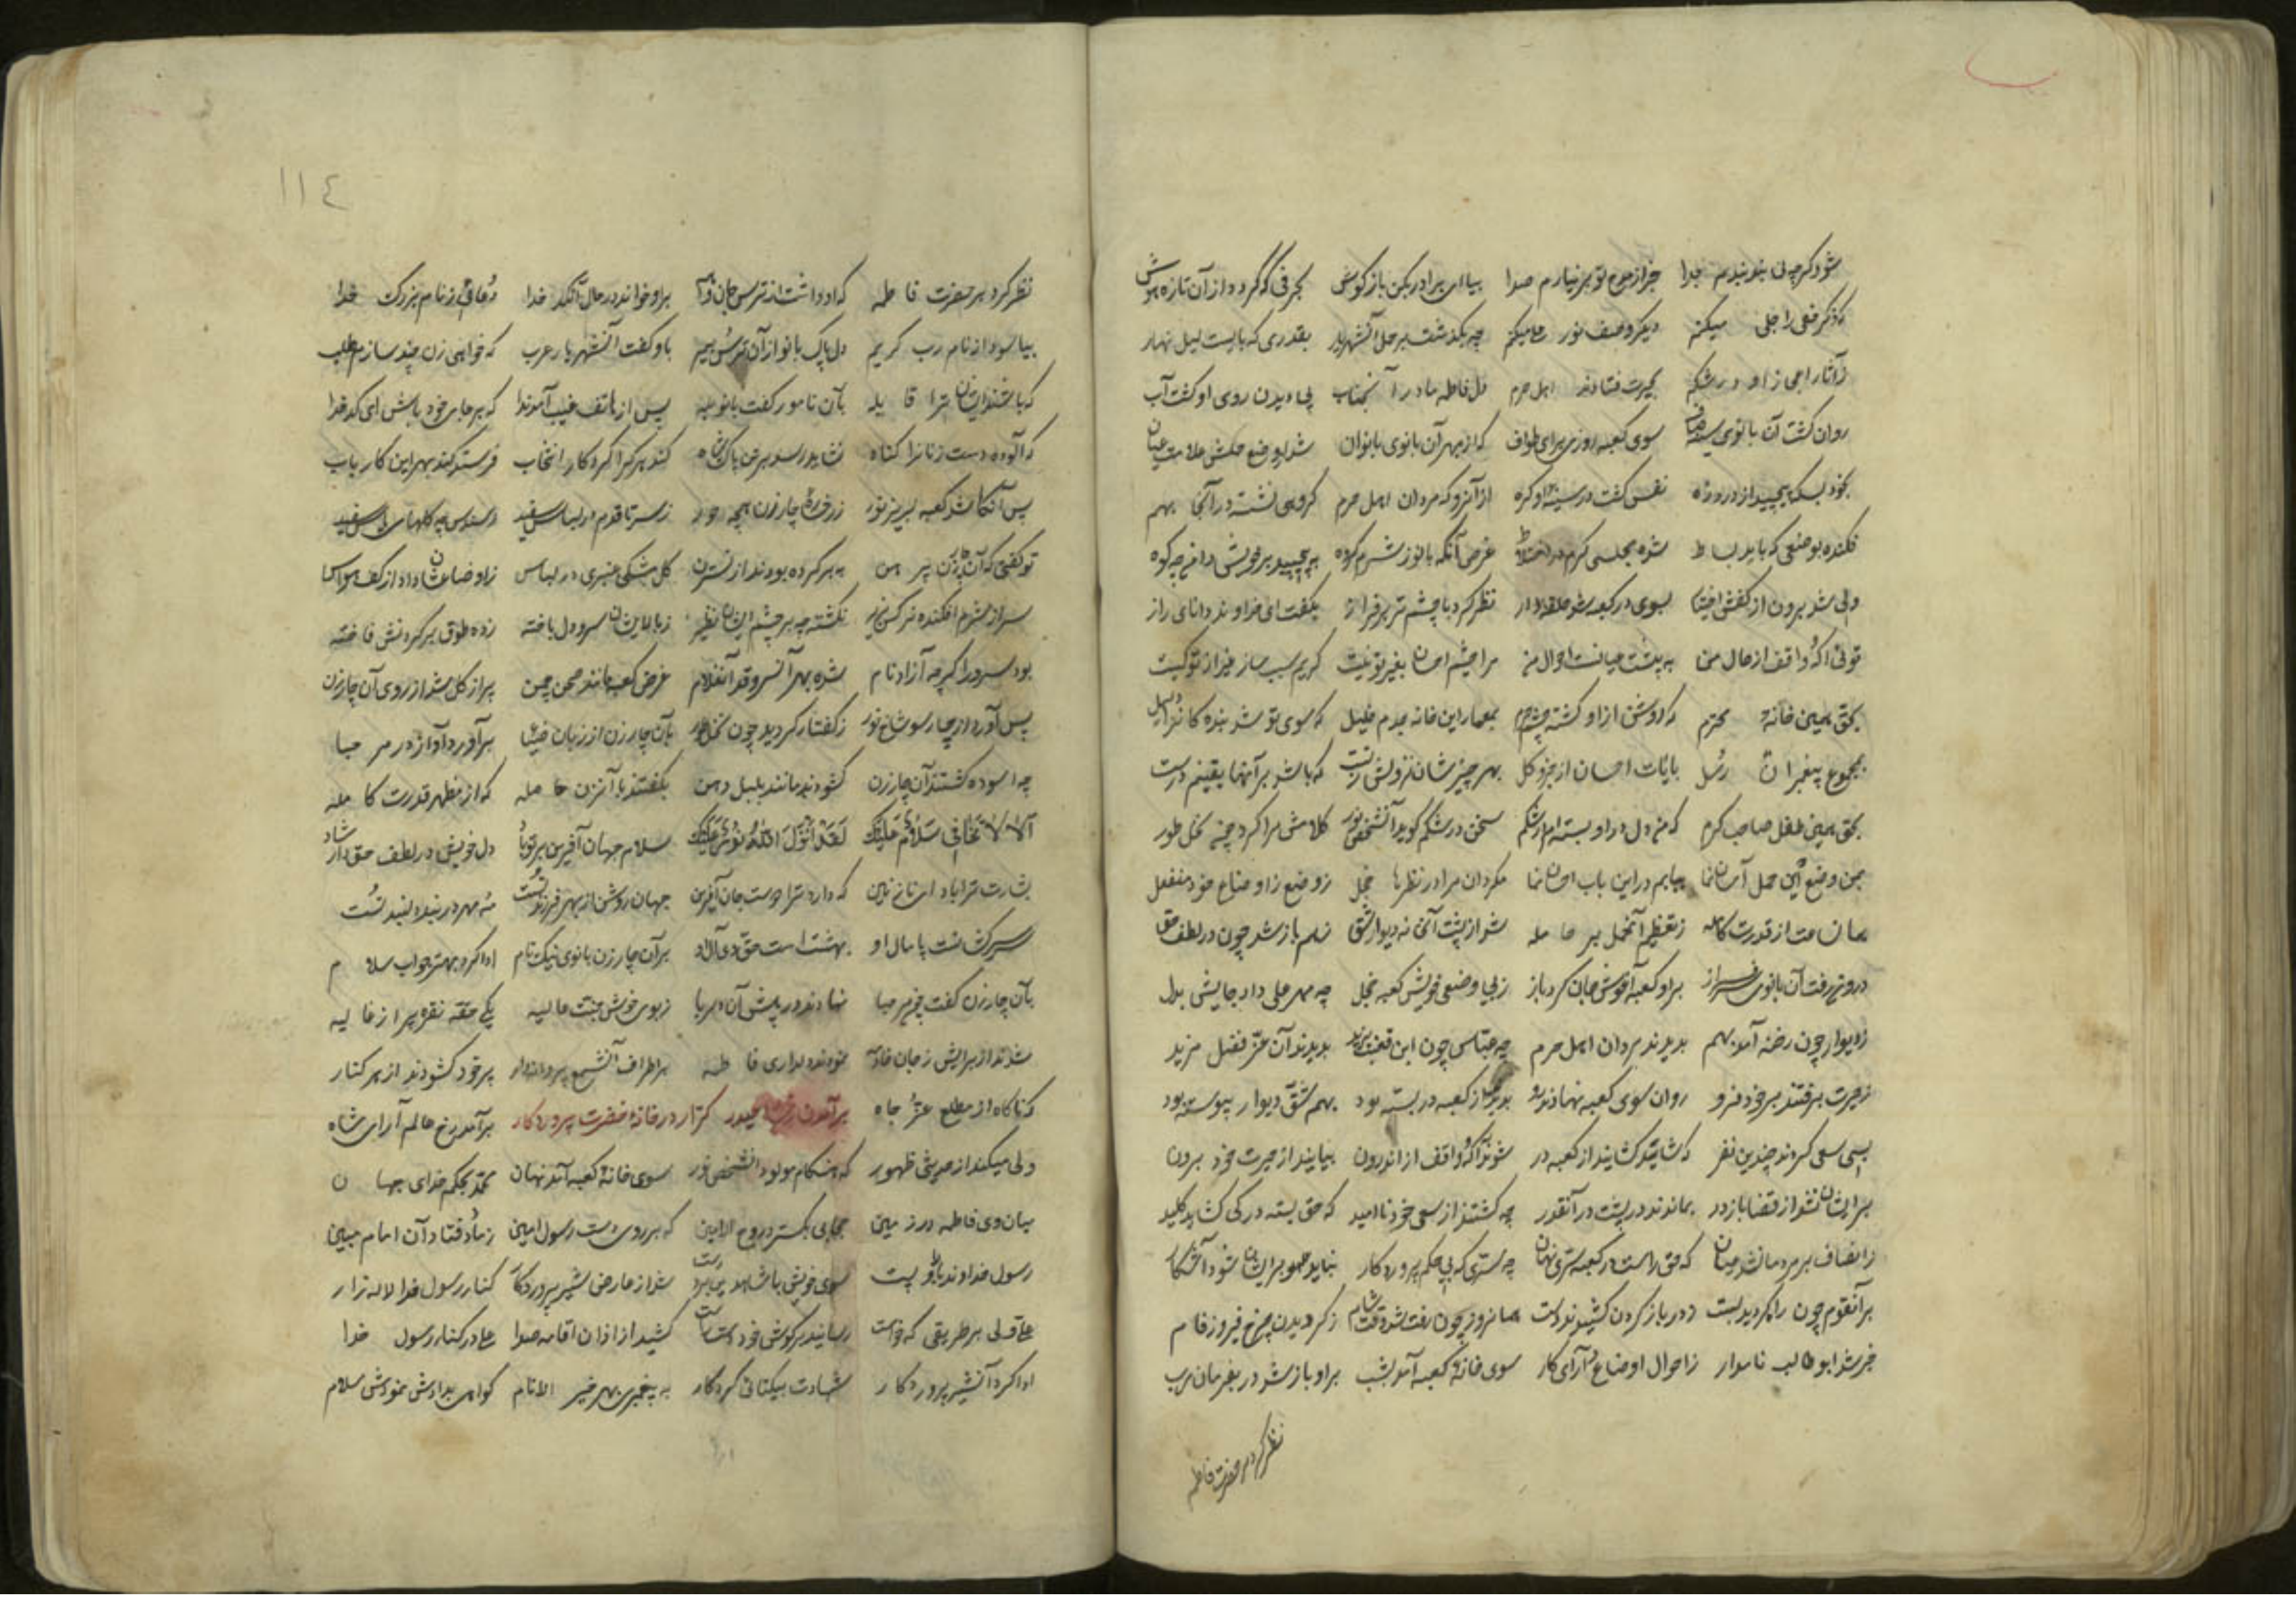 شود گر چه نی بند بندم جدا جز از مدح تو بر نیارم صدا بیا ای برادر بکن باز گوش بحرفی که گردد از آن تازه هوش
که ذکر خفی را جلی میکنم دیگر وصف نور علی میکنم چه بگذشت بر حمل آنشهریار بقدری که بایست لیل و نهار
ز آثار اعجاز او در شکم بحیرت فتادند اهل حرم دل فاطمه مادر آنجناب پی دیدن روی او گشت آب
روان گشت آن بانوی سوی کعبه روزی برای طواف که از بهر آن بانوی بانوان شد از وضع حملش علامت عیان
بخود بسکه پیچید از درد زه نفس گشت در سینه او گره از آنرو که مردان اهل حرم گروهی نشسته در آنجا بهم
فکنده بوضعی که باید بساط شده مجلسی گرم در اختلاط غرض آنکه بانو ز شرم گروه به پیچید بر خویش دامن چه کوه
ولی شد برون از کفش اختیار بسوی در کعبه شد حلقه وار نظر کرد با چشم تر بر فراز بگفت ای خداوند دانای راز
توئی آگه و واقف از حال من به پشت عیانست احوال من مرا چشم احسان بغیر تو نیست کریم سبب ساز غیر از تو کیست
بحق همین خانه محترم که روشن از او گشته چشم بمعمار این خانه یعنی خلیل که سوی تو شد بنده کانرا دلیل
بمجموع پیغمبران رسل بآیات احسان از جزو کل بهر چیز شان نزولش ز تست که باشد بر آنها یقینم درست
بحق همین طفل صاحب کرم که من دل در او بسته ام در شکم سخن در شکم گوید آنشخص نور کلامش مرا کرد چه نخل طور
بمن وضع این حمل آسان نما بیابم در این باب احسان نما مگردان مرا در نظرها خجل ز وضع ز اوضاع خود منفعل
همان ساعت از قدرت کامله ز تعظیم آنحمل بر حامله شد از پشت آنخانه دیوار شق ز هم باز شد چون در لطف حق
درون رفت آن بانوی سرفراز بر او کعبه آغوش جان کرد باز ز بی وضعی خویش کعبه خجل چه مهر علی داد جایش بدل
ز دیوار چون رخنه آمد بهم بدیدند مردان اهل حرم چه عباس چون ابن قعنب یزید بدیدند آن عز فضل مزید
ز حیرت برفتند بر خود فرو روان سوی کعبه نهادند رو بدیدند کز کعبه در بسته بود بهم شق دیوار پیوسته بود
بسی سعی کردند چندین نفر که شاید گشایند از کعبه در شوند آگه و واقف از اندرون بیایند از حیرت خود برون
بر ایشان نشد از قضا باز در بماندند در پشت در آنقدر چه گشتند از سعی خود ناامید که حق بسته در کی گشاید کلید
ز انصاف بر مردمان شد عیان که حق راست در کعبه سری نهان چه سری که بی حکم پروردگار نباید همه بر ایشان شود آشکار
بر آنقوم چون راه گردید بست ز در باز کردن کشیدند دست همانروز چون رفت شد وقت شام ز گردیدن چرخ فیروزه فام
خبر شد ابوطالب نامدار ز احوال اوضاع آرای کار سوی خانه کعبه آمد بشب بر او باز شد در بفرمان رب
نظر کرد بر حضرت فاطمه
۱۱٤
نظر کرد بر حضرت فاطمه که او داشت از ترس جان واهمه بر او خواند در حال آنکد خدا دعائی ز نام بزرگ خدا
بیاسود از نام رب کریم دل پاک بانو از آن ترس بیم باو گفت آنشهریار عرب که خواهی زن چند سازم طلب
که باشند ایشان ترا قابله بآن نامور گفت بانو پس از هاتف غیب آمد ندا که بر جای خود باش ای کدخدا
که آلوده دست زنانرا گناه نشاید رسد بر تن پاک شاه کند هر کرا کردگار انتخاب فرستد کند بهر این کار باب
پس آنگاه شد کعبه لبریز نور ز رخ چار زن همچه حور ز سر تا قدم در لباس سفید
تو گفتی که آن چار زن پیرهن به بر کرده بودند از نسترن گل مشکی عنبری در لباس ز اوضاعشان داد از کف حواس
سر از شرم افکنده نرگس بزیر نگشته چه بر چشم ایشان نظیر ز بالایشان سرو دل باخته زده طوق بر گردنش فاخته
بود سرو را گرچه آزاد نام شده بهر آنسرو قد آنغلام غرض کعبه مانند صحن چمن پر از گل شد از روی آن چار زن
پس آورد از چار سو شاخ نور ز گفتار گردید چون نخل طور بآن چار زن از زبان برآورد آواز در مرحبا
چه آسوده گشتند آن چار زن گشودند مانند بلبل دهن بگفتند با آنزن حامله که از مظهر قدرت کامله
الا لا تخافی سلام علیک لقد انزل الله نور علیک سلام جهان آفرین بر تو باد دل خویش در لطف حق دار شاد
بشارت ترا باد ای نازنین که دارد ترا دوست جان آفرین جهان روشن از بهر فرزند تست مه مهر در بند دلبند تست
سر سرکشانست پامال او بهشتست حق دی آل او بر آن چار زن بانوی نیک نام ادا کرد بهتر جواب سلام
بآن چار زن گفت چون مرحبا نهادند در پیش آن دلربا ز بوی خوش جنت عالیه یکی حقه نقره پر از غالیه
شدند از برایش ز جان خادمه نمودند دلداری فاطمه بر اطراف آنشمع پروانه وار پر خود گشودند از هر کنار
که ناگاه از مطلع عز جاه برآمدن حیدر کرار در خانه حضرت پروردگار برآمد رخ عالم آرای شاه
ولی میکند از حدیثی ظهور که هنگام مولود آنشخص نور سوی خانه کعبه آمد نهان محمد بحکم خدای جهان
میان وی فاطمه در زمین حجابی بگسترد روح الامین که بر روی دست رسول امین ز ماد فتاد آن امام مبین
رسول خداوند بالا و پست سوی خویش با شاهد برد دست شد از عارض شیر پروردگار کنار رسول خدا لاله زار
علی ولی بر طریقی که خواست رسانید بر گوش خود دست راست کشید از اذان اقامه صدا علی در کنار رسول خدا
ادا کرد آنشیر پروردگار شهادت بیکتائی کردگار به پیغمبری بهر خیر الانام گواهی بدادش نمودش سلام